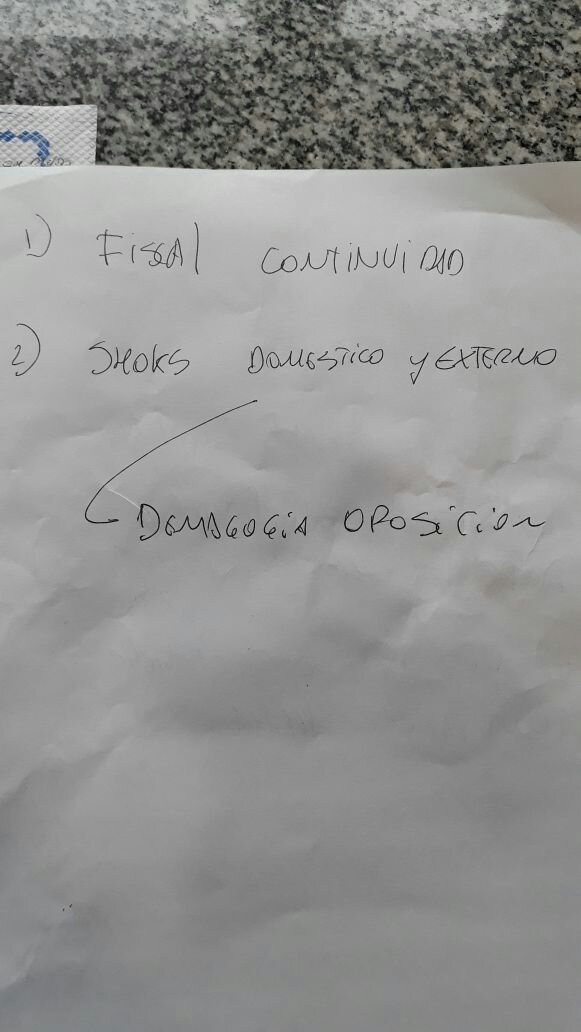 1) FiSCAl CONTiNUiDAD
2) SHOKS DOMESTICO y EXTERNO
DEMAGOGiA OPOSiCiON